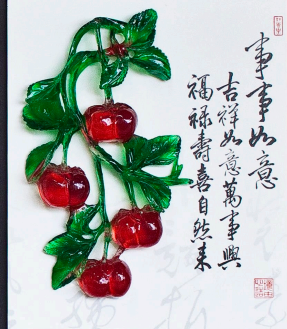 事事如意
吉祥如意萬事興
福禄壽喜自然来